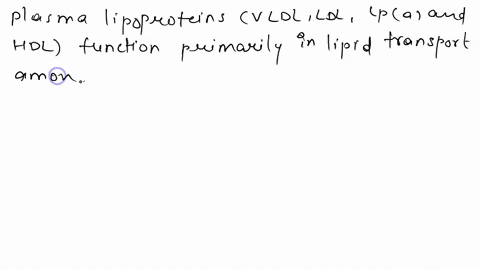 plasma lipoproteins (VLDL, LDL, LP(a) and
HDL) function primarily in lipid transport
amon.